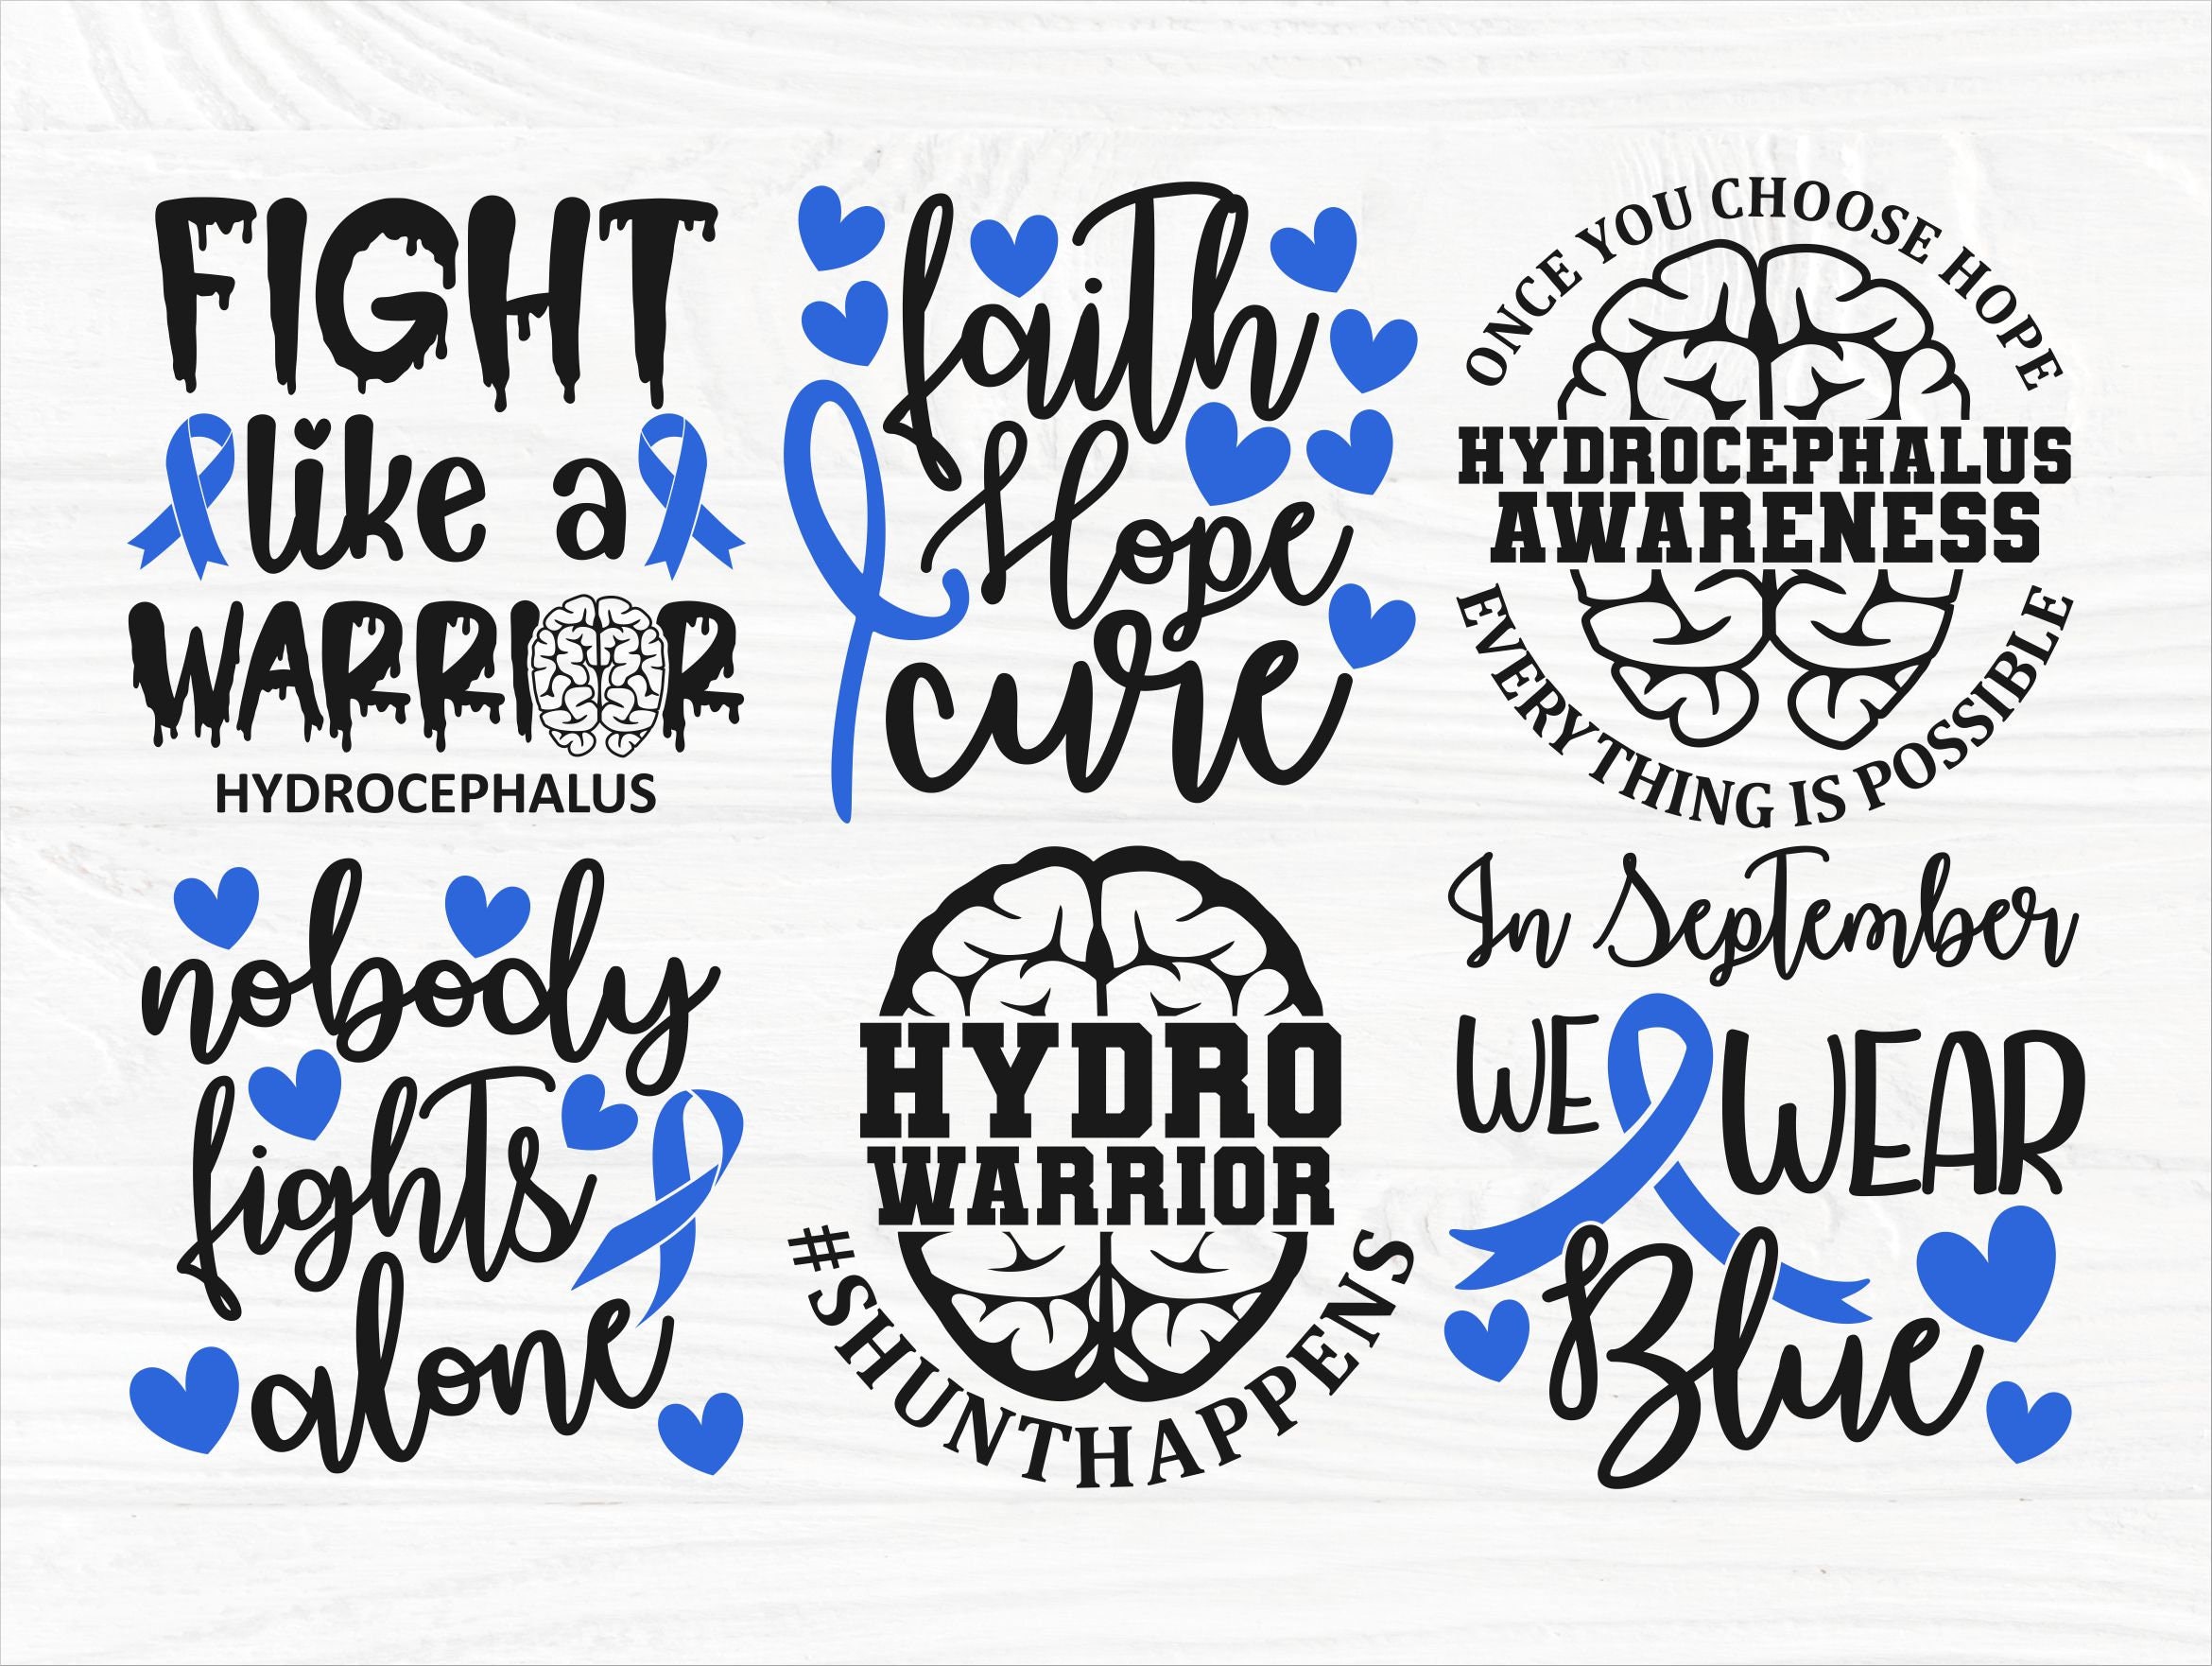 FIGHT
like a
WARRIOR
HYDROCEPHALUS
faith
Hope
cure
ONCE YOU CHOOSE HOPE
HYDROCEPHALUS
AWARENESS
EVERYTHING IS POSSIBLE
nobody
fights
alone
HYDRO
WARRIOR
#SHUNTHAPPENS
In September
WE WEAR
Blue